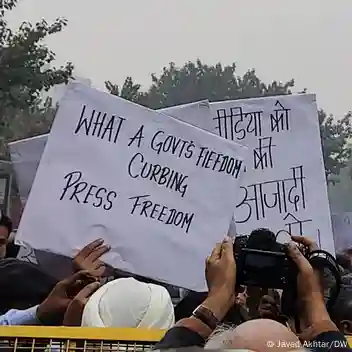 WHAT A GOVT'S FIEFDOM
CURBING
PRESS FREEDOM
मीडिया को
की
आजादी
दो
© Javed Akhtar/DW